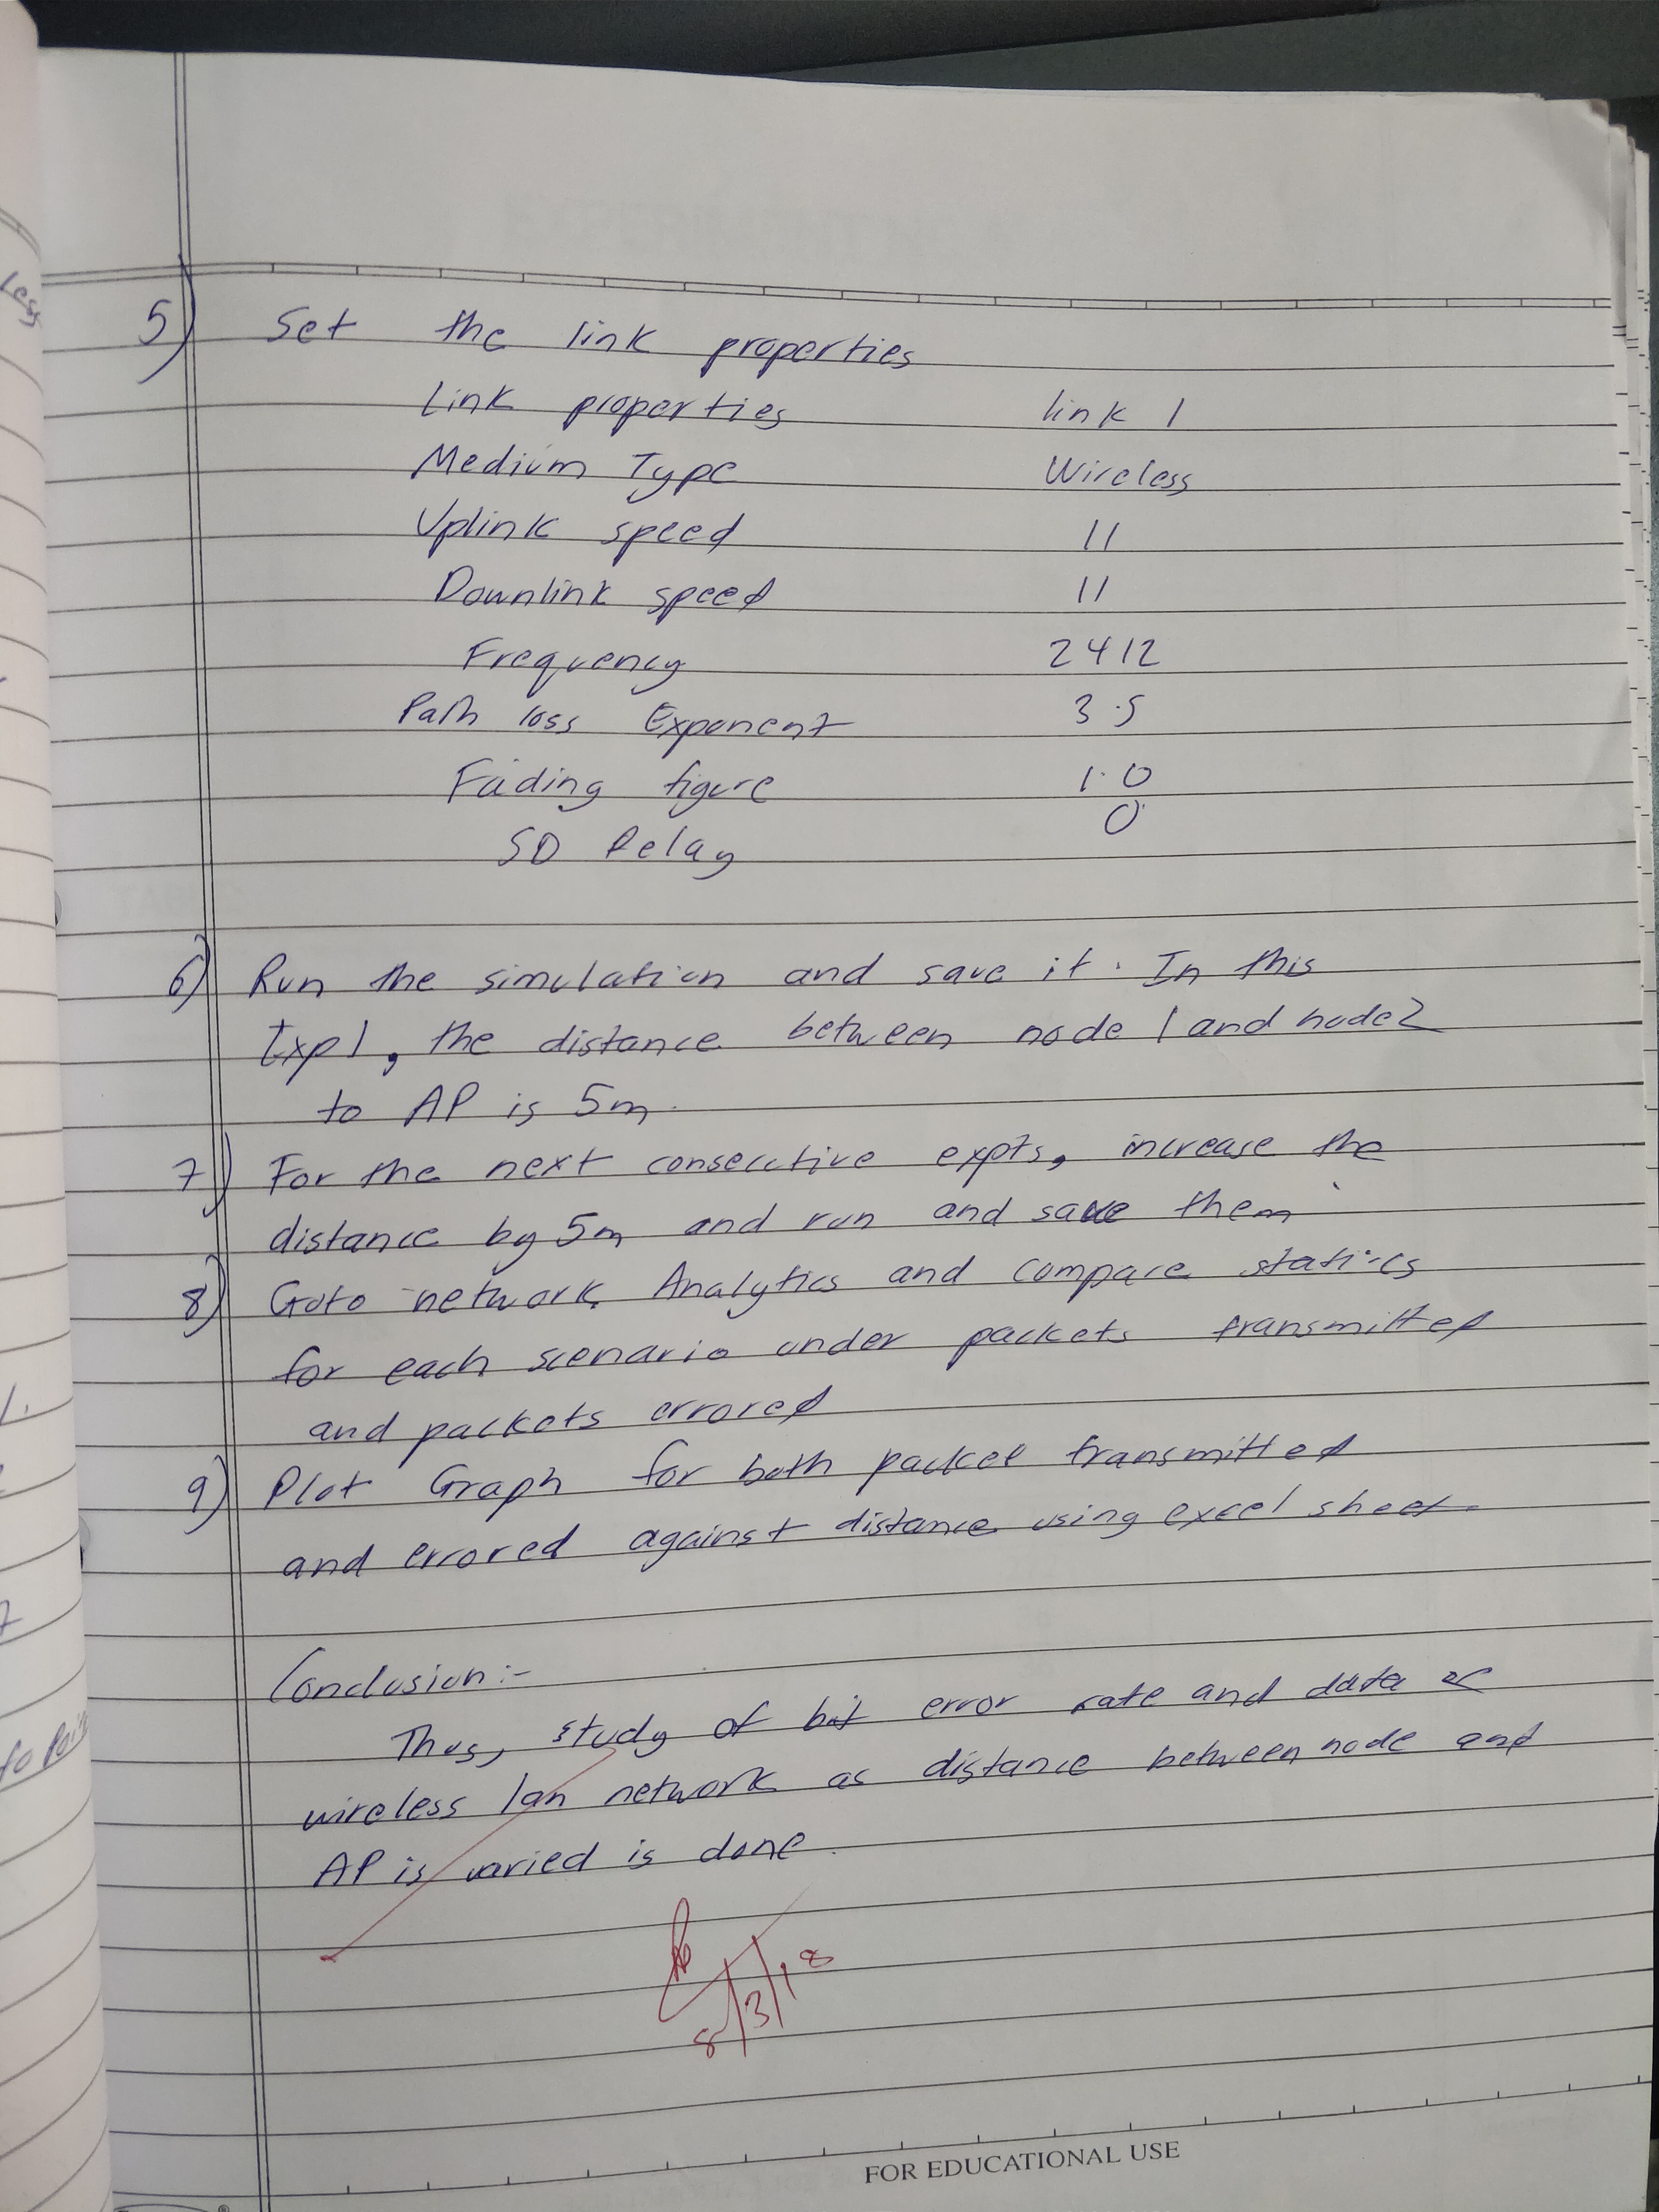 5) Set the link properties
Link properties link 1
Medium Type Wireless
Uplink speed 11
Downlink speed 11
Frequency 2412
Path loss Exponent 3.5
Fading figure 1.0
SD Relay 0
6) Run the simulation and save it. In this
Exp1, the distance between node 1 and node2
to AP is 5m.
7) For the next consecutive expts, increase the
distance by 5m and run and save them
8) Goto network Analytics and compare statics
for each scenario under packets transmitted
and packets errored
9) Plot Graph for both packet transmitted
and errored against distance using excel sheet.
Conclusion:-
Thus, study of bit error rate and data of
wireless lan network as distance between node and
AP is varied is done.
8/3/18
FOR EDUCATIONAL USE
Less